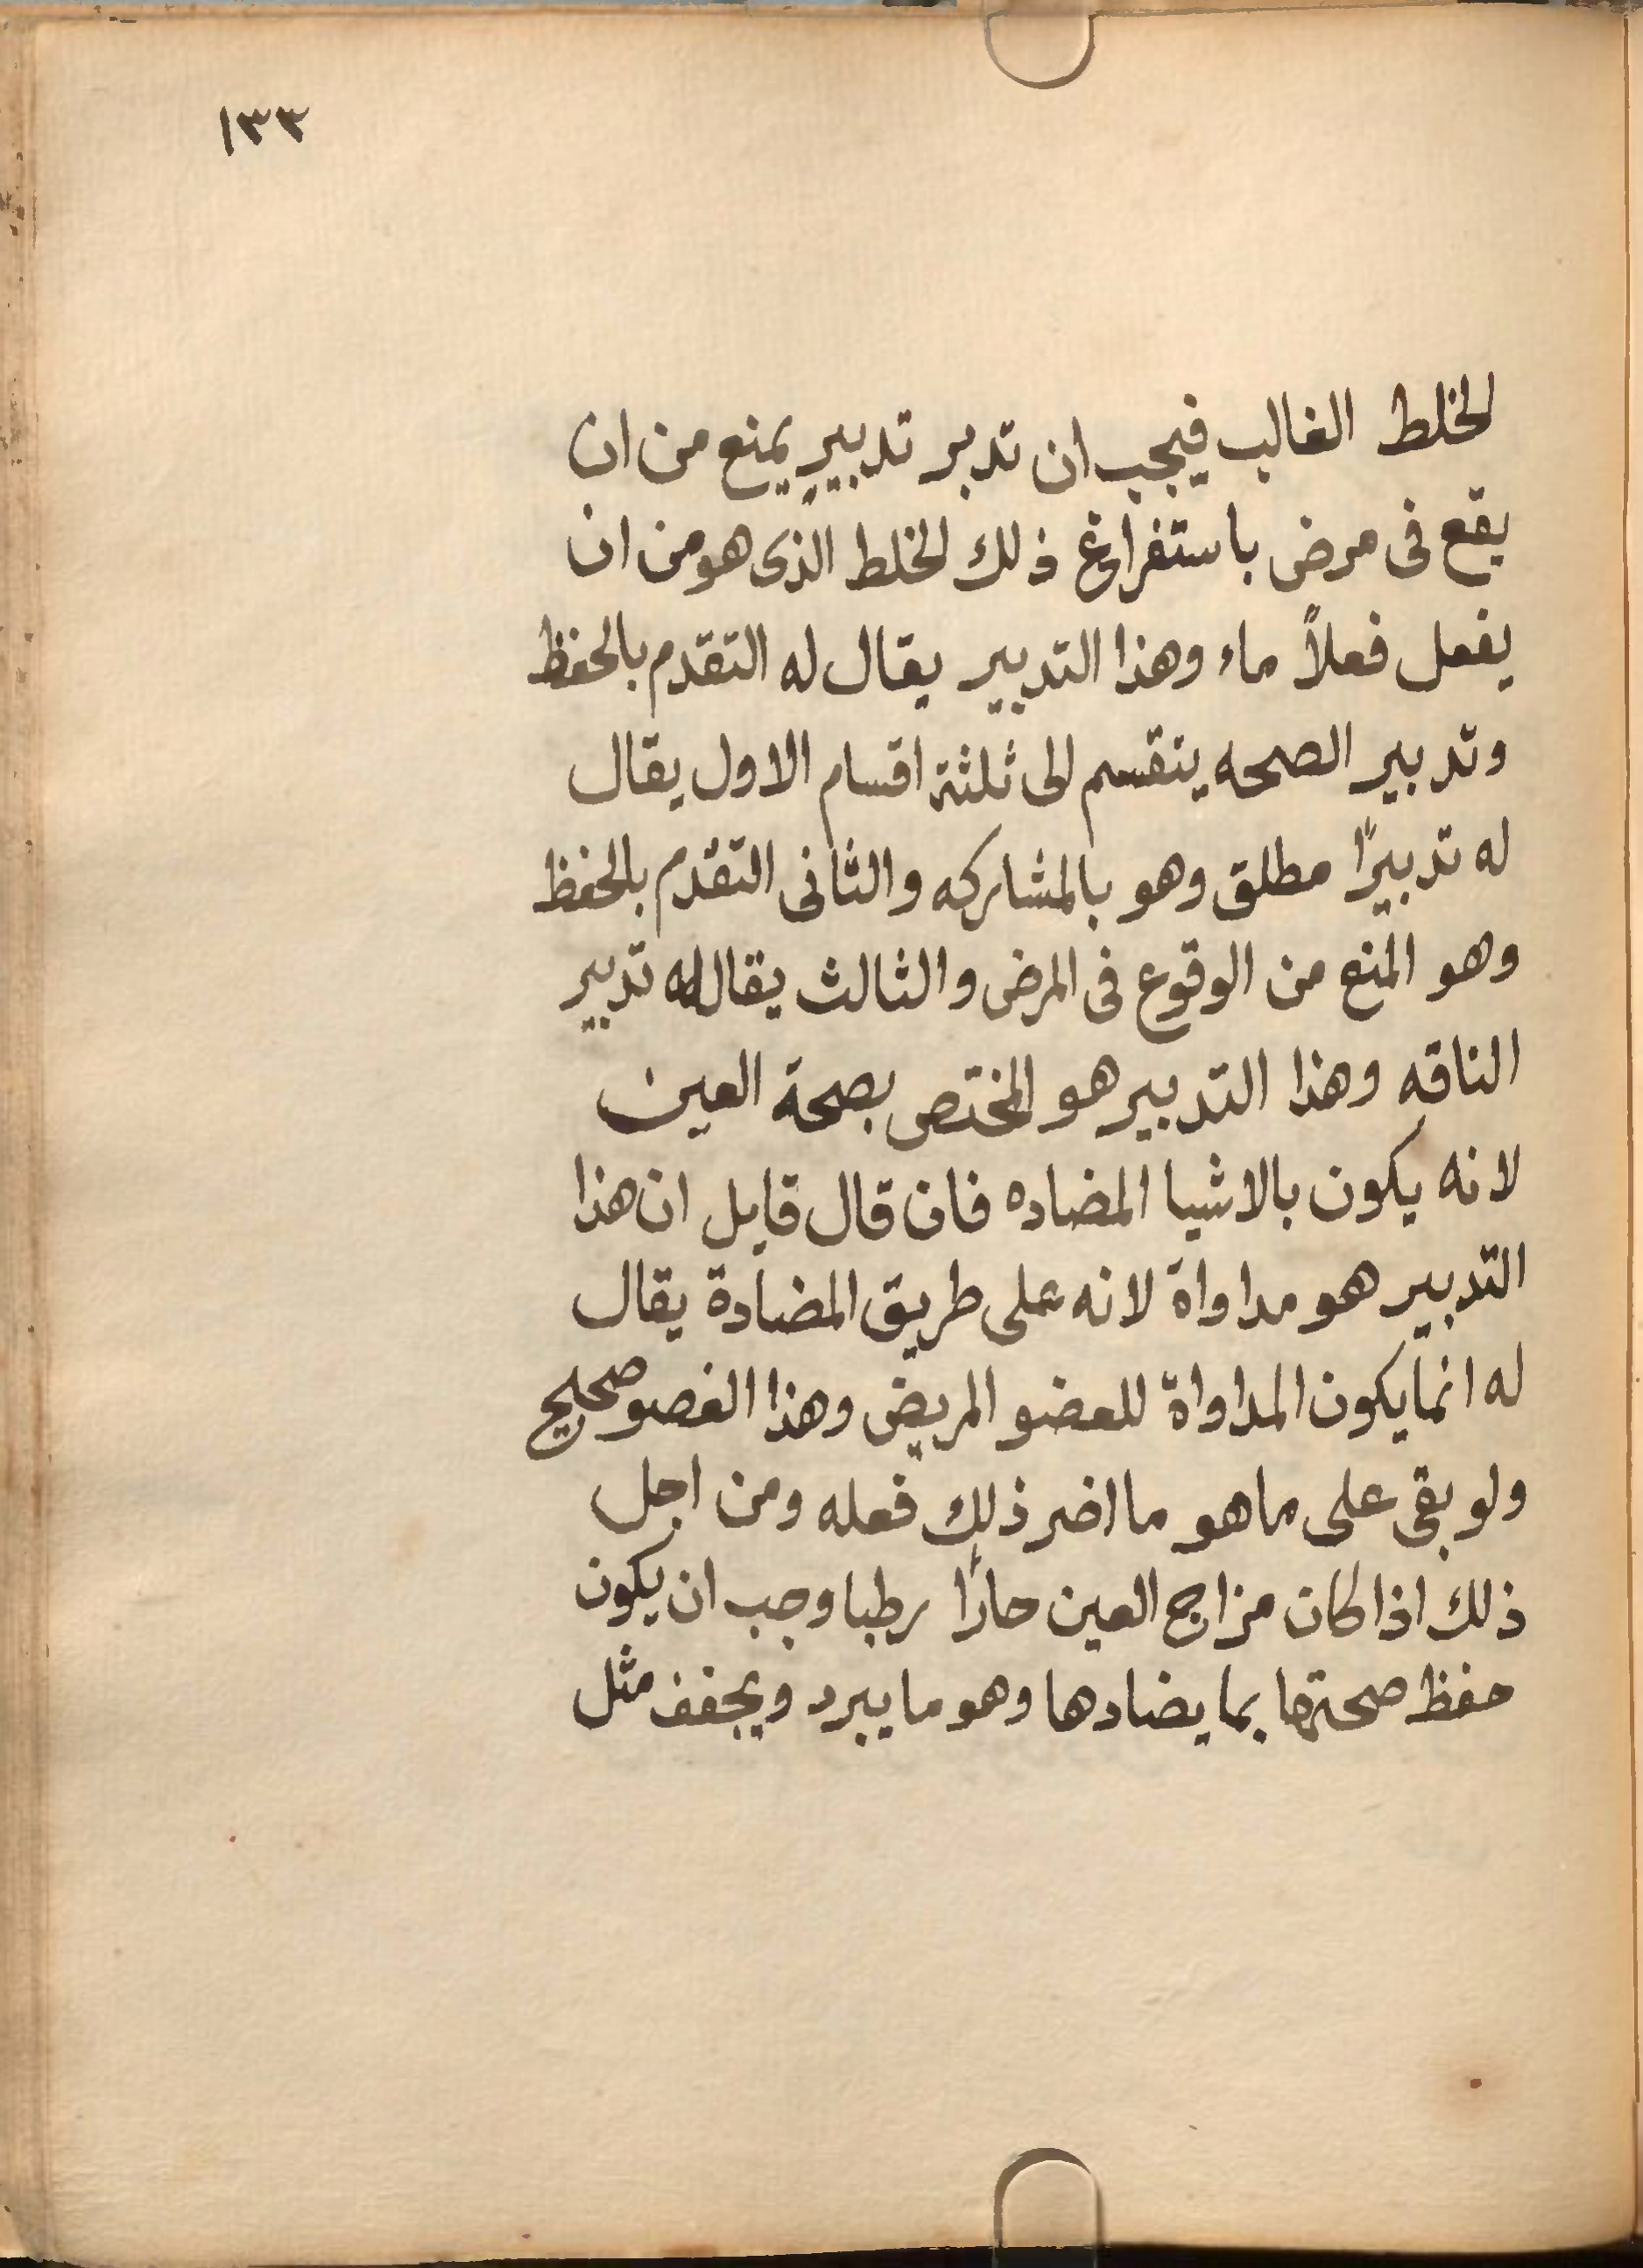 ١٣٣
الخلط الغالب فيجب ان تدبر تدبيرٍ يمنع من ان
يقع فى مرض باستفراغ ذلك الخلط الذى هو من ان
يفعل فعلاً ماء وهذا التدبير يقال له التقدم بالحفظ
وتدبير الصحه ينقسم الى ثلثة اقسام الاول يقال
له تدبيرًا مطلق وهو بالمشاركه والثانى التقدم بالحفظ
وهو المنع من الوقوع فى المرض والثالث يقال له تدبير
الناقه وهذا التدبير هو المختص بصحة العين
لانه يكون بالاشيا المضاده فان قال قايل ان هذا
التدبير هو مداواة لانه على طريق المضادة يقال
له انما يكون المداواة للعضو المريض وهذا الغصو صحيح
ولو بقى على ما هو ما اضر ذلك فعله ومن اجل
ذلك اذا كان مزاج العين حارًا رطبا وجب ان يكون
حفظ صحتها بما يضادها وهو ما يبرد ويجفف مثل